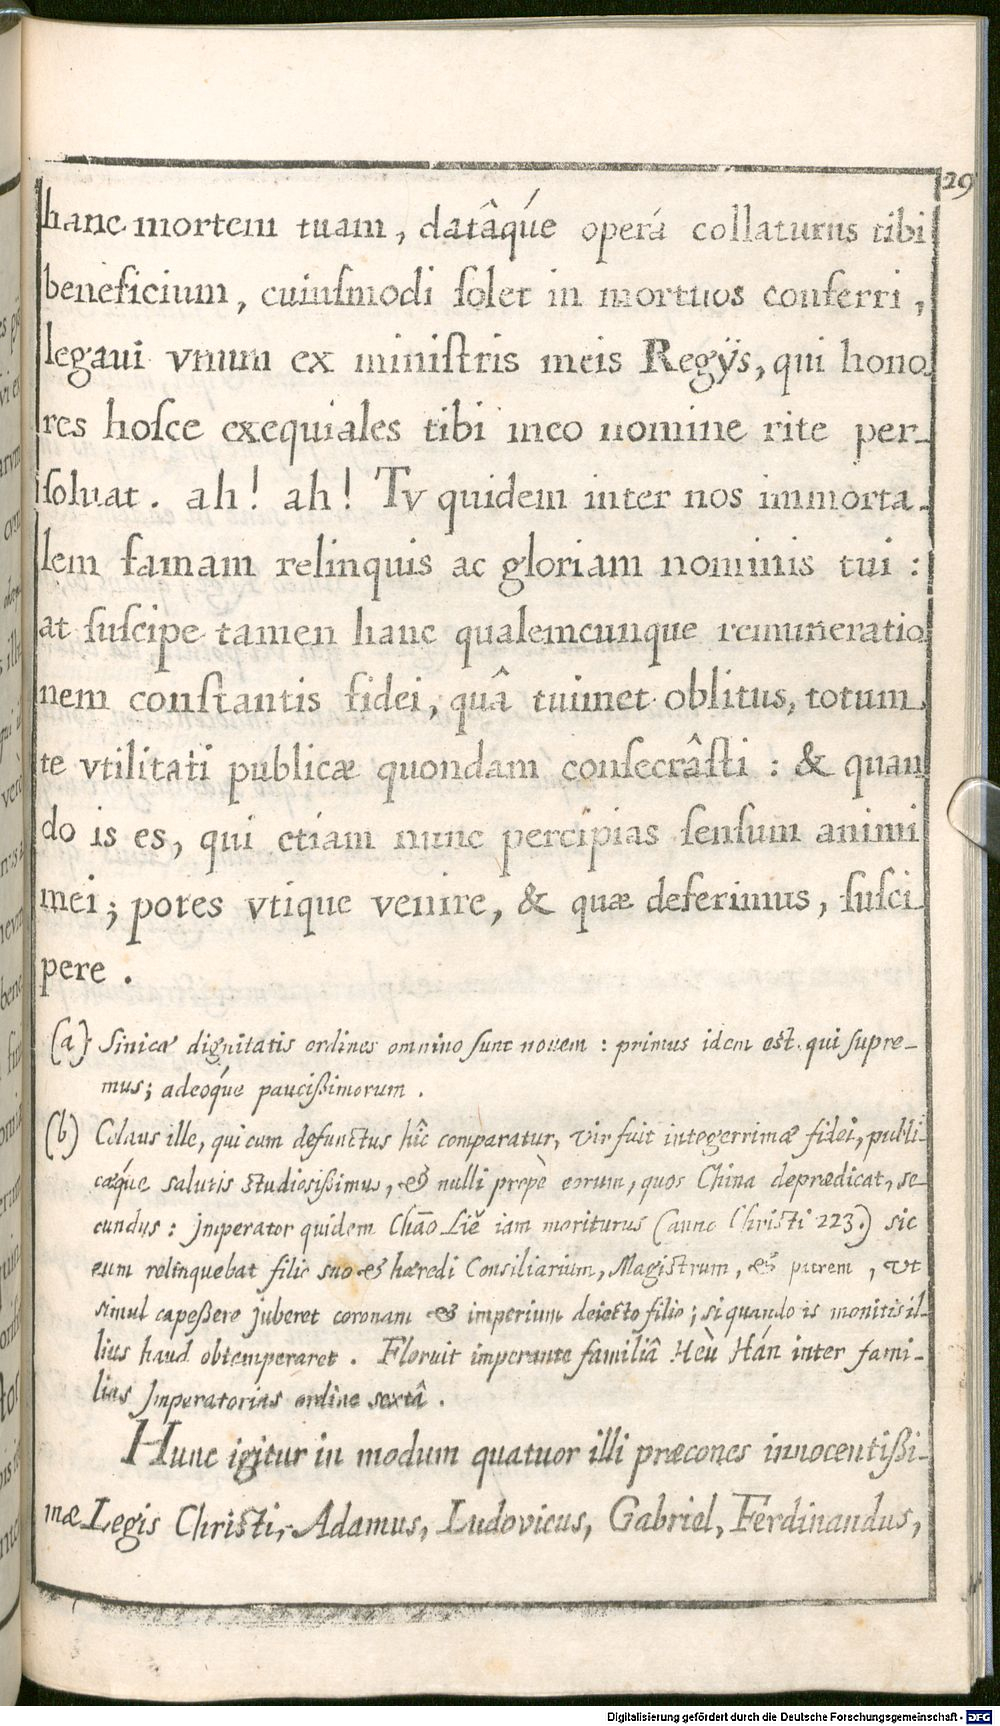 29
hanc mortem tuam, datâqúe operá collaturus tibi
beneficium, cuiuſmodi ſolet in mortuos conferri,
legaui vnum ex miniſtris meis Regÿs, qui hono
res hoſce exequiales tibi meo nomine rite per-
ſoluat. ah! ah! Tv quidem inter nos immorta-
lem famam relinquis ac gloriam nominis tui:
at ſuſcipe tamen hanc qualemcunque remuneratio
nem conſtantis fidei, quâ tuimet oblitus, totum
te vtilitati publicæ quondam conſecrâſti: & quan
do is es, qui etiam nunc percipias ſenſum animi
mei; potes vtique venire, & quæ deferimus, ſuſci-
pere.
(a) Sinicæ dignitatis ordines omnino ſunt nouem: primus idem est. qui ſupre-
mus; adeoqúe pauciſsimorum.
(b) Colaus ille, qui cum defunctus hîc comparatur, vir fuit integerrimæ fidei, publi-
cæqúe salutis studiosiſsimus, & nulli propè eorum, quos China deprædicat, se-
cundus: Jmperator quidem Chāo Liĕ iam moriturus (anno Christi 223.) sic
eum relinquebat filio suo & hæredi Consiliarium, Magistrum, & patrem, vt
simul capeſsere juberet coronam & imperium deiecto filio; si quando is monitis il-
lius haud obtemperaret. Floruit imperante familiâ Heù Hán inter fami-
lias Jmperatorias ordine sextâ.
Hunc igitur in modum quatuor illi præcones innocentiſsi-
mæ Legis Christi, Adamus, Ludovicus, Gabriel, Ferdinandus,
Digitalisierung gefördert durch die Deutsche Forschungsgemeinschaft - DFG